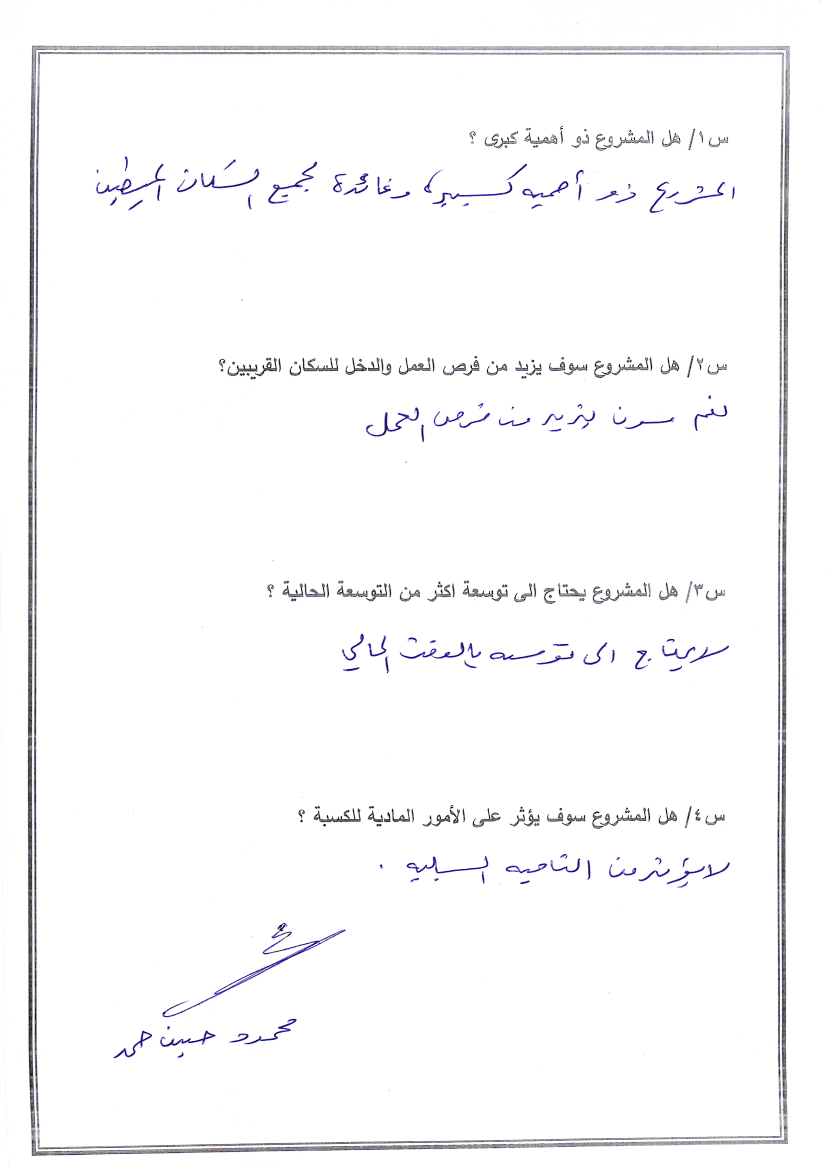 س١/ هل المشروع ذو أهمية كبرى ؟
المشروع ذو أهميه كبيره وفائدة لجميع السكان المحيطين
س٢/ هل المشروع سوف يزيد من فرص العمل والدخل للسكان القريبين؟
نعم سوف يزيد من فرص العمل
س٣/ هل المشروع يحتاج الى توسعة اكثر من التوسعة الحالية ؟
لايحتاج الى توسعه بالوقت الحالي
س٤/ هل المشروع سوف يؤثر على الأمور المادية للكسبة ؟
لايؤثر من الناحيه السلبيه .
محمود حسين حمد